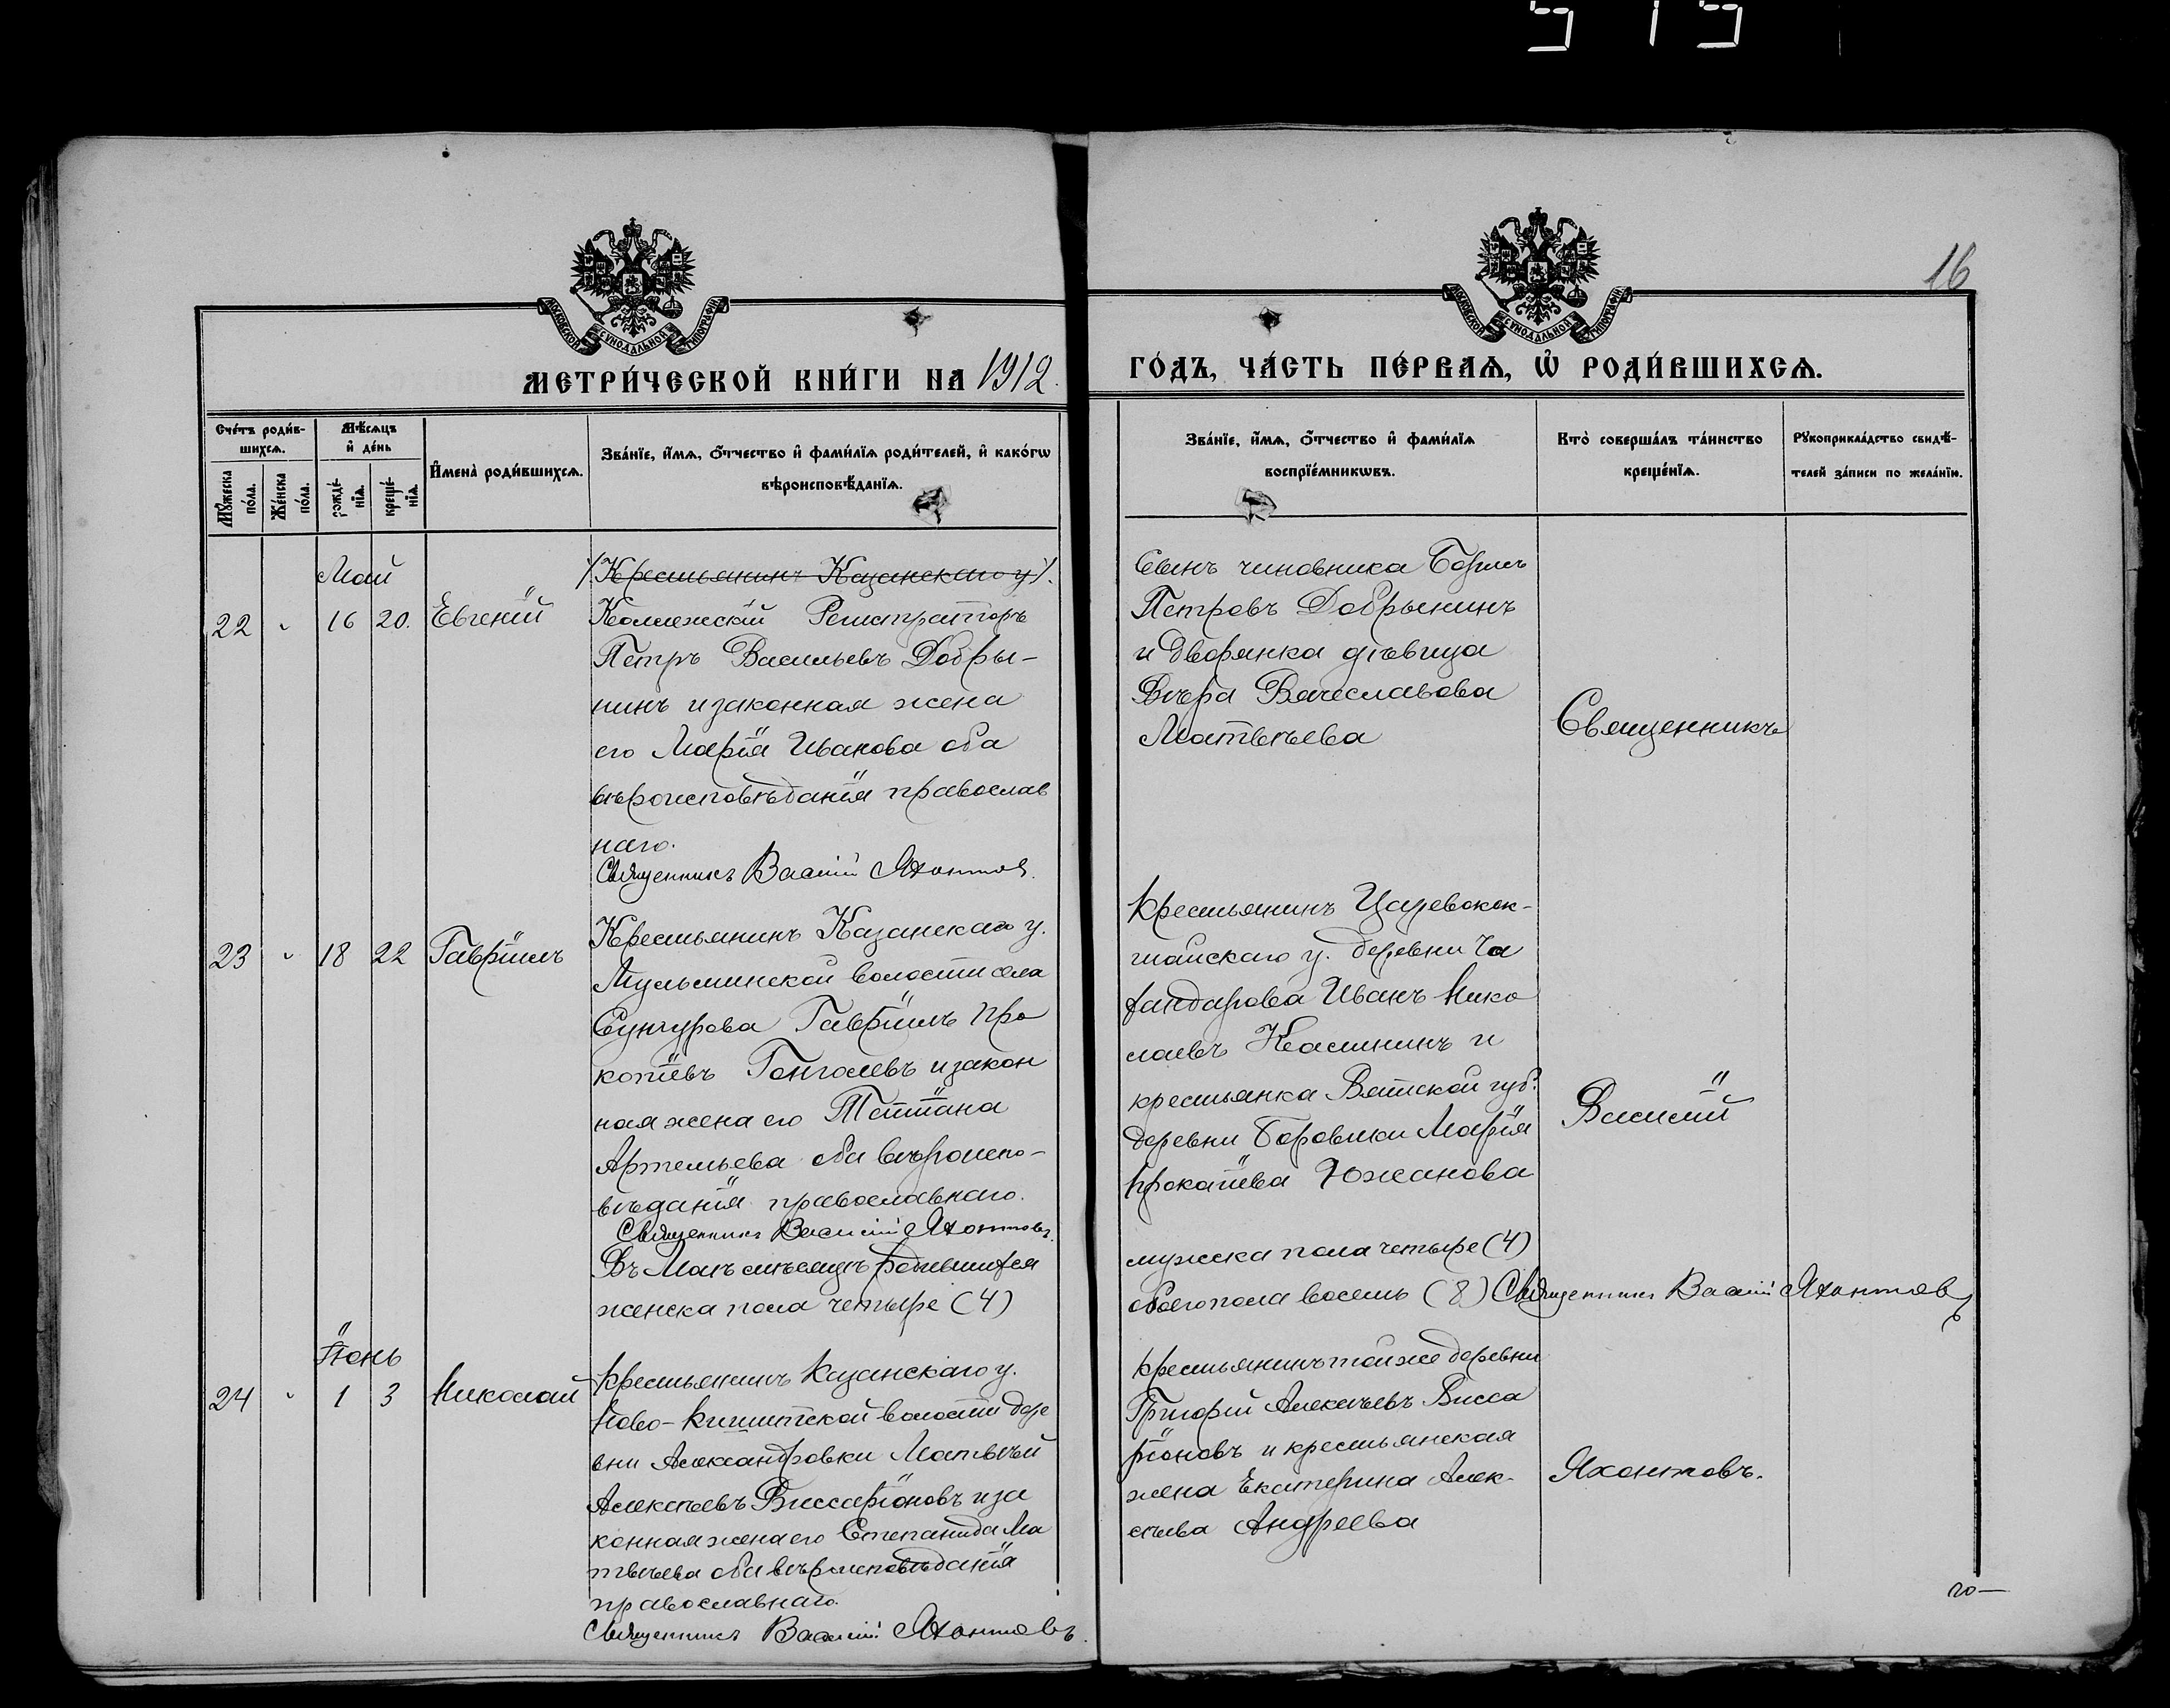 515
16
МОСКОВСКОЙ СѴНОДАЛЬНОЙ ТИПОГРАФІИ
МОСКОВСКОЙ СѴНОДАЛЬНОЙ ТИПОГРАФІИ
МЕТРИ́ЧЕСКОЙ КНИ́ГИ НА 1912.
ГО́ДЪ, ЧА́СТЬ ПЕ́РВАѦ, Ѡ҆ РОДИ́ВШИХСѦ.
Сче́тъ роди́в-
шихсѧ.
Мѣ́сѧцъ
и҆ де́нь
Мꙋ́жеска
по́ла.
Же́нска
по́ла.
рожде́-
нїѧ.
креще́-
нїѧ.
И҆мена̀ роди́вшихсѧ.
Зва́нїе, и҆́мѧ, ѻ҆́тчество и҆ фами́лїѧ роди́телей, и҆ како́гѡ
вѣроисповѣ́данїѧ.
Зва́нїе, и҆́мѧ, ѻ҆́тчество и҆ фами́лїѧ
воспрїе́мникѡвъ.
Кто̀ соверша́лъ та́инство
креще́нїѧ.
Рꙋкоприкла́дство свидѣ́-
телей за́писи по жела́нїю.
Май
22 " 16 20. Евгеній
Крестьянинъ Казанскаго у
Коллежскій Регистраторъ
Петръ Васильевъ Добры-
нинъ и законная жена
его Марія Иванова оба
вѣроисповѣданія православ
наго.
Священникъ Василій Яхонтовъ.
Сынъ чиновника Борисъ
Петровъ Добрынинъ
и дворянка дѣвица
Вѣра Вячеславова
Матвѣева
Священникъ
23 " 18 22 Гавріилъ
Крестьянинъ Казанскаго у.
Мульминской волости села
Сунгурова Гавріилъ Про
копіевъ Гонголевъ и закон
ная жена его Татіана
Артемьева оба вѣроиспо-
вѣданія православнаго.
Священникъ Василій Яхонтовъ.
Крестьянинъ Царевокок-
шайскаго у. деревни
Иванъ Нико
лаевъ Касининъ и
крестьянка Вятской губ.
деревни Боровики Марія
Прокопіева Южанова
Василій
Въ Маѣ мѣсяцѣ родившихся
женска пола четыре (4)
мужска пола четыре (4)
обоего пола восемь (8) Священникъ Василій Яхонтовъ
Іюнь
24 " 1 3 Николай
Крестьянинъ Казанскаго у.
Ново-Кишитской волости дере
вни Александровки Матвѣй
Алексѣевъ Виссаріоновъ и за
конная жена его Степанида Ма
твѣева оба вѣроисповѣданія
православнаго.
Священникъ Василій Яхонтовъ.
Крестьянинъ той же деревни
Григорій Алексѣевъ Висса
ріоновъ и крестьянская
жена Екатерина Алек-
сѣева Андреева
Яхонтовъ.
го—